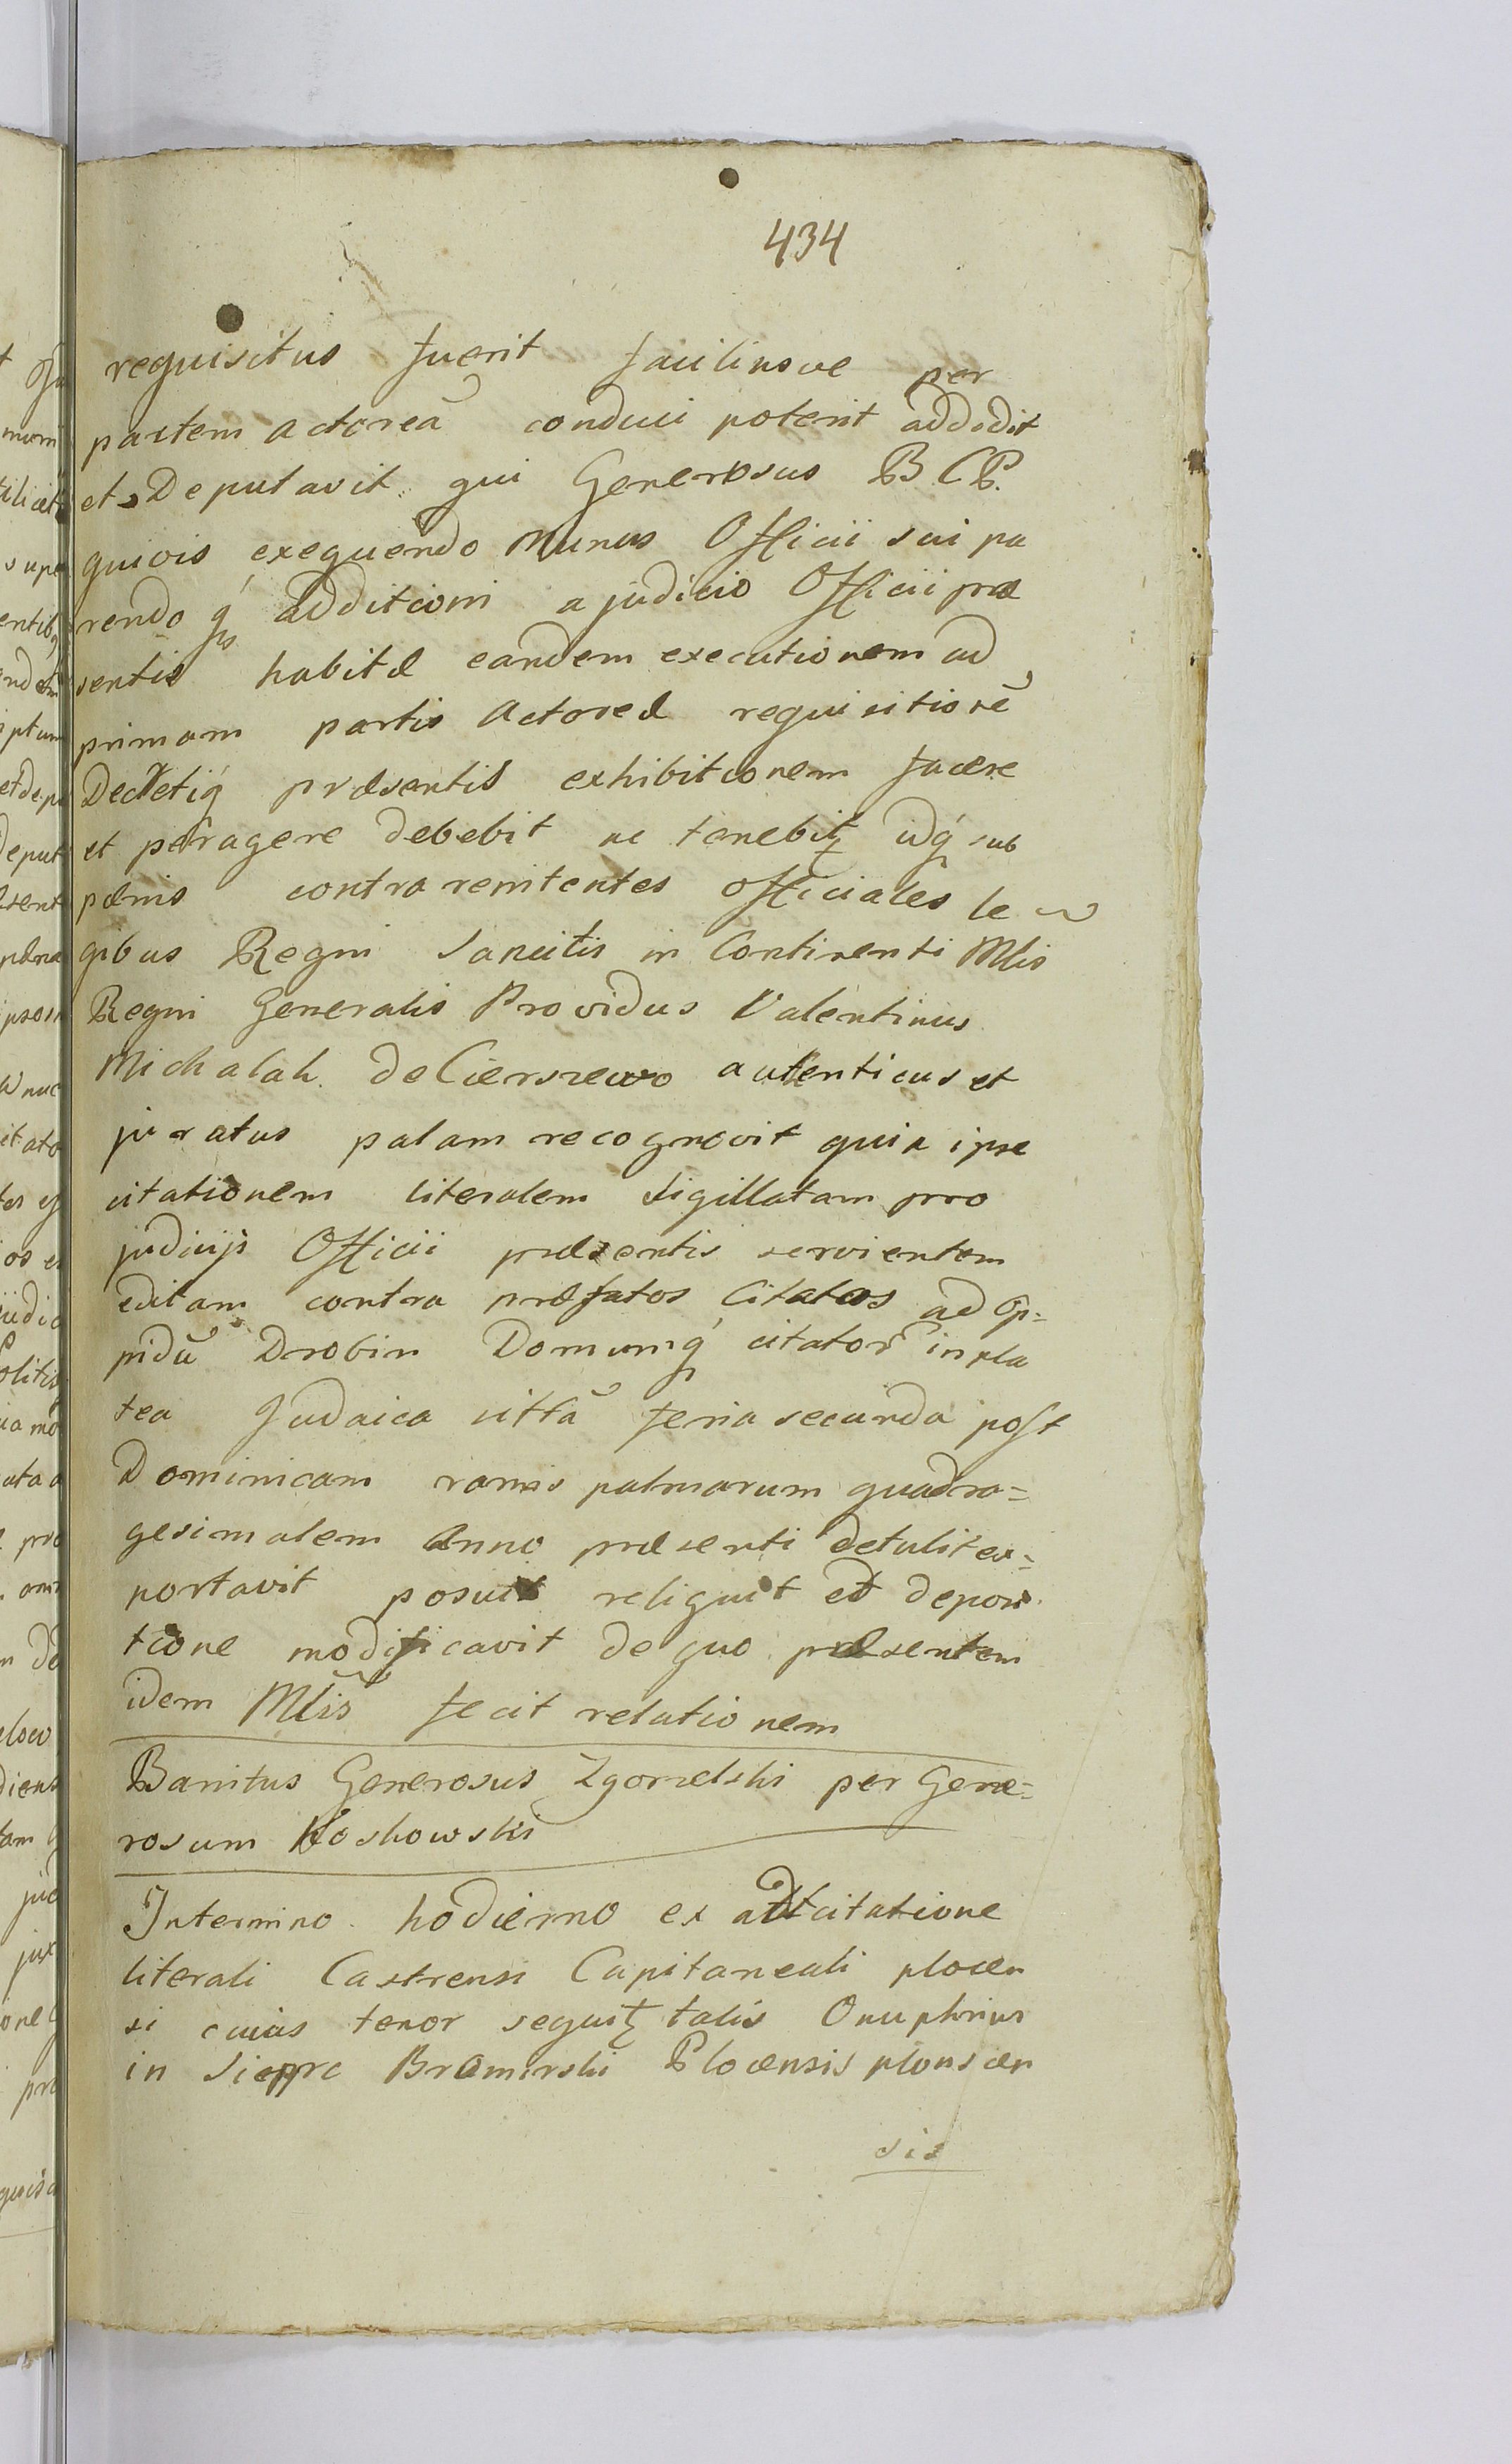 434
requisitus fuerit faciliusve per
partem actoreã conduci poterit addidit
et Deputavit qui Generosus B. C. P.
quivis exequendo Munus Officii sui pa
rendo q́ additioni a judicio Officii præ
sentis habitæ eandem executionem ad
primam partis Actoreæ requisitionẽ
Decretiq́ præsentis exhibitionem facere
et peragere debebit ac tenebitꝫ idq́ sub
pænis contra renitentes officiales le
gibus Regni sancitis in Continenti Mlis
Regni Generalis Providus Valentinus
Michalak de Cierszewo autenticus et
juratus palam recognovit quia ipse
citationem literalem sigillatam pro
judicijs Officii præsentis servientem
editam contra præfatos Citatos ad Op=
pidũ Drobin Domumq́ citatoř in pla
tea Judaica sittã feria secunda post
Dominicam ramis palmarum quadra=
gesimalem Anno præsenti detulit ex=
portavit posuit reliquit et deposi
tione modificavit de quo præsentem
idem Mlis fecit relationem
Banitus Generosus Zgorzelski per Gene=
rosum Koskowski
In termino hodierno ex citatione
literali Castrensi Capitaneali plocen
si cuius tenor sequitꝫ talis Onuphrius
in Sieprc Bromirski Plocensis plonscen
sis